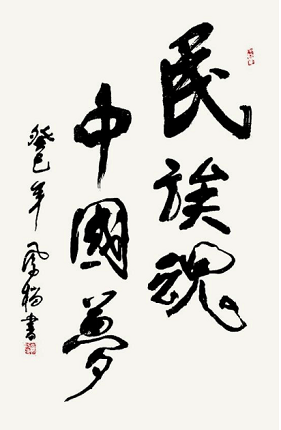 民族魂
中國夢
癸巳年 鳳 書